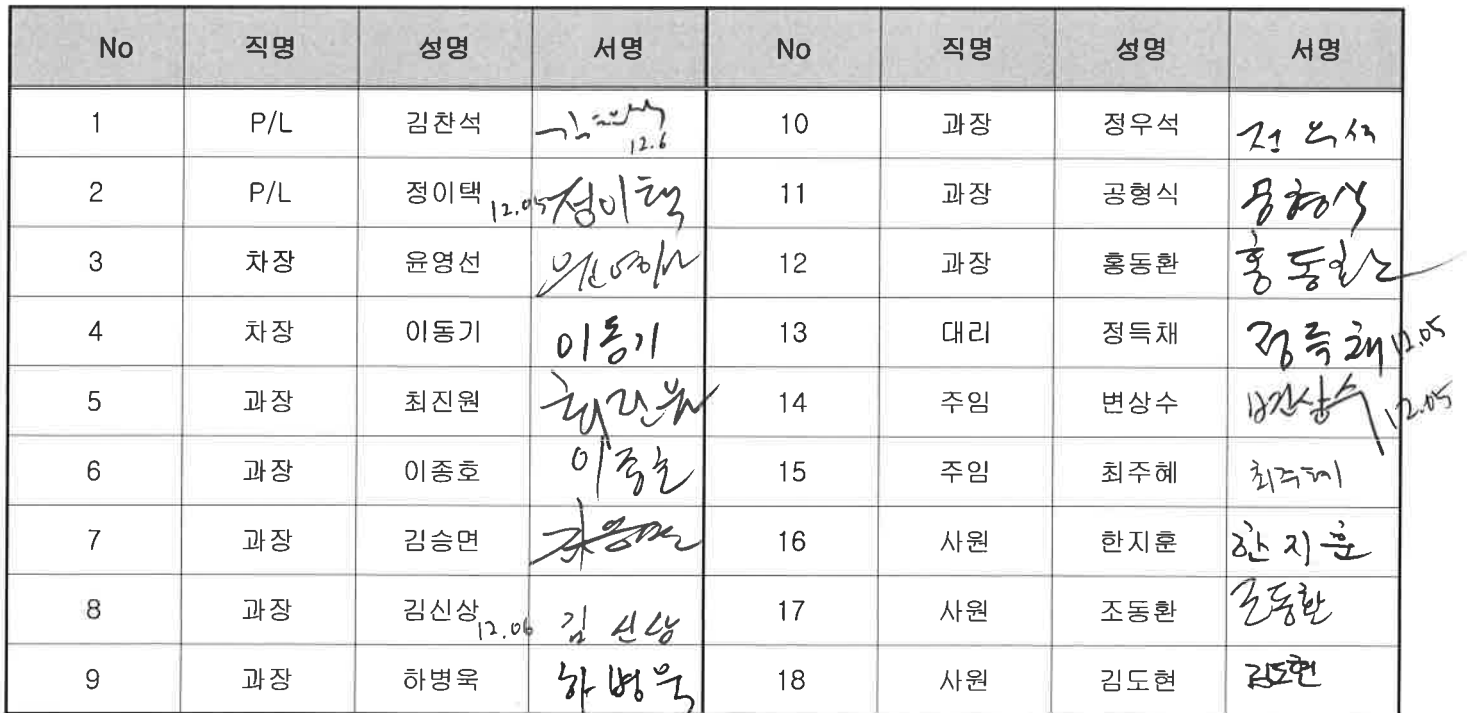 No 직명 성명 서명 No 직명 성명 서명
1 P/L 김찬석 12.6 10 과장 정우석
2 P/L 정이택 12.05 정이택 11 과장 공형식 공형식
3 차장 윤영선 윤영선 12 과장 홍동환 홍동환
4 차장 이동기 이동기 13 대리 정득채 정득채 12.05
5 과장 최진원 최진원 14 주임 변상수 변상수 12.05
6 과장 이종호 이종호 15 주임 최주혜 최주혜
7 과장 김승면 16 사원 한지훈 한지훈
8 과장 김신상 12.06 김신상 17 사원 조동환 조동환
9 과장 하병욱 하병욱 18 사원 김도현 김도현